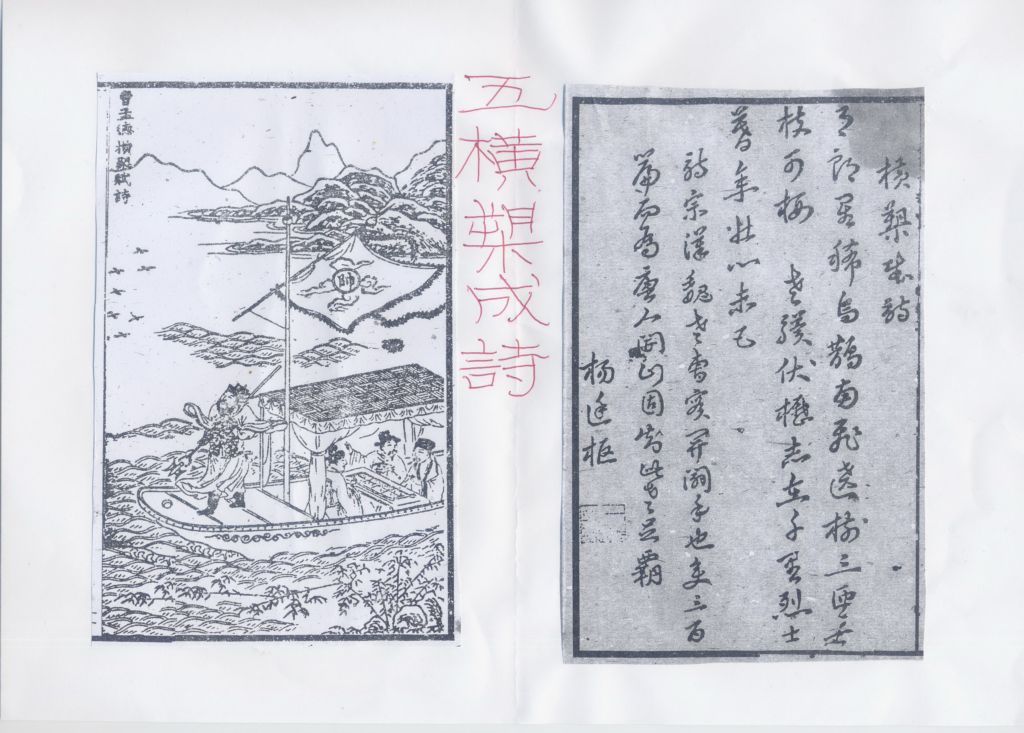 横槊成詩
月朗星稀烏鵲南飛遶樹三匝無
枝可棲 老驥伏櫪志在千里烈士
暮年壯心未已
詩宗漢魏老曹實開闢手也變三百
篇而為唐人開山固當此老霸
楊廷樞
五橫槊成詩
曹孟德横槊賦詩
帥